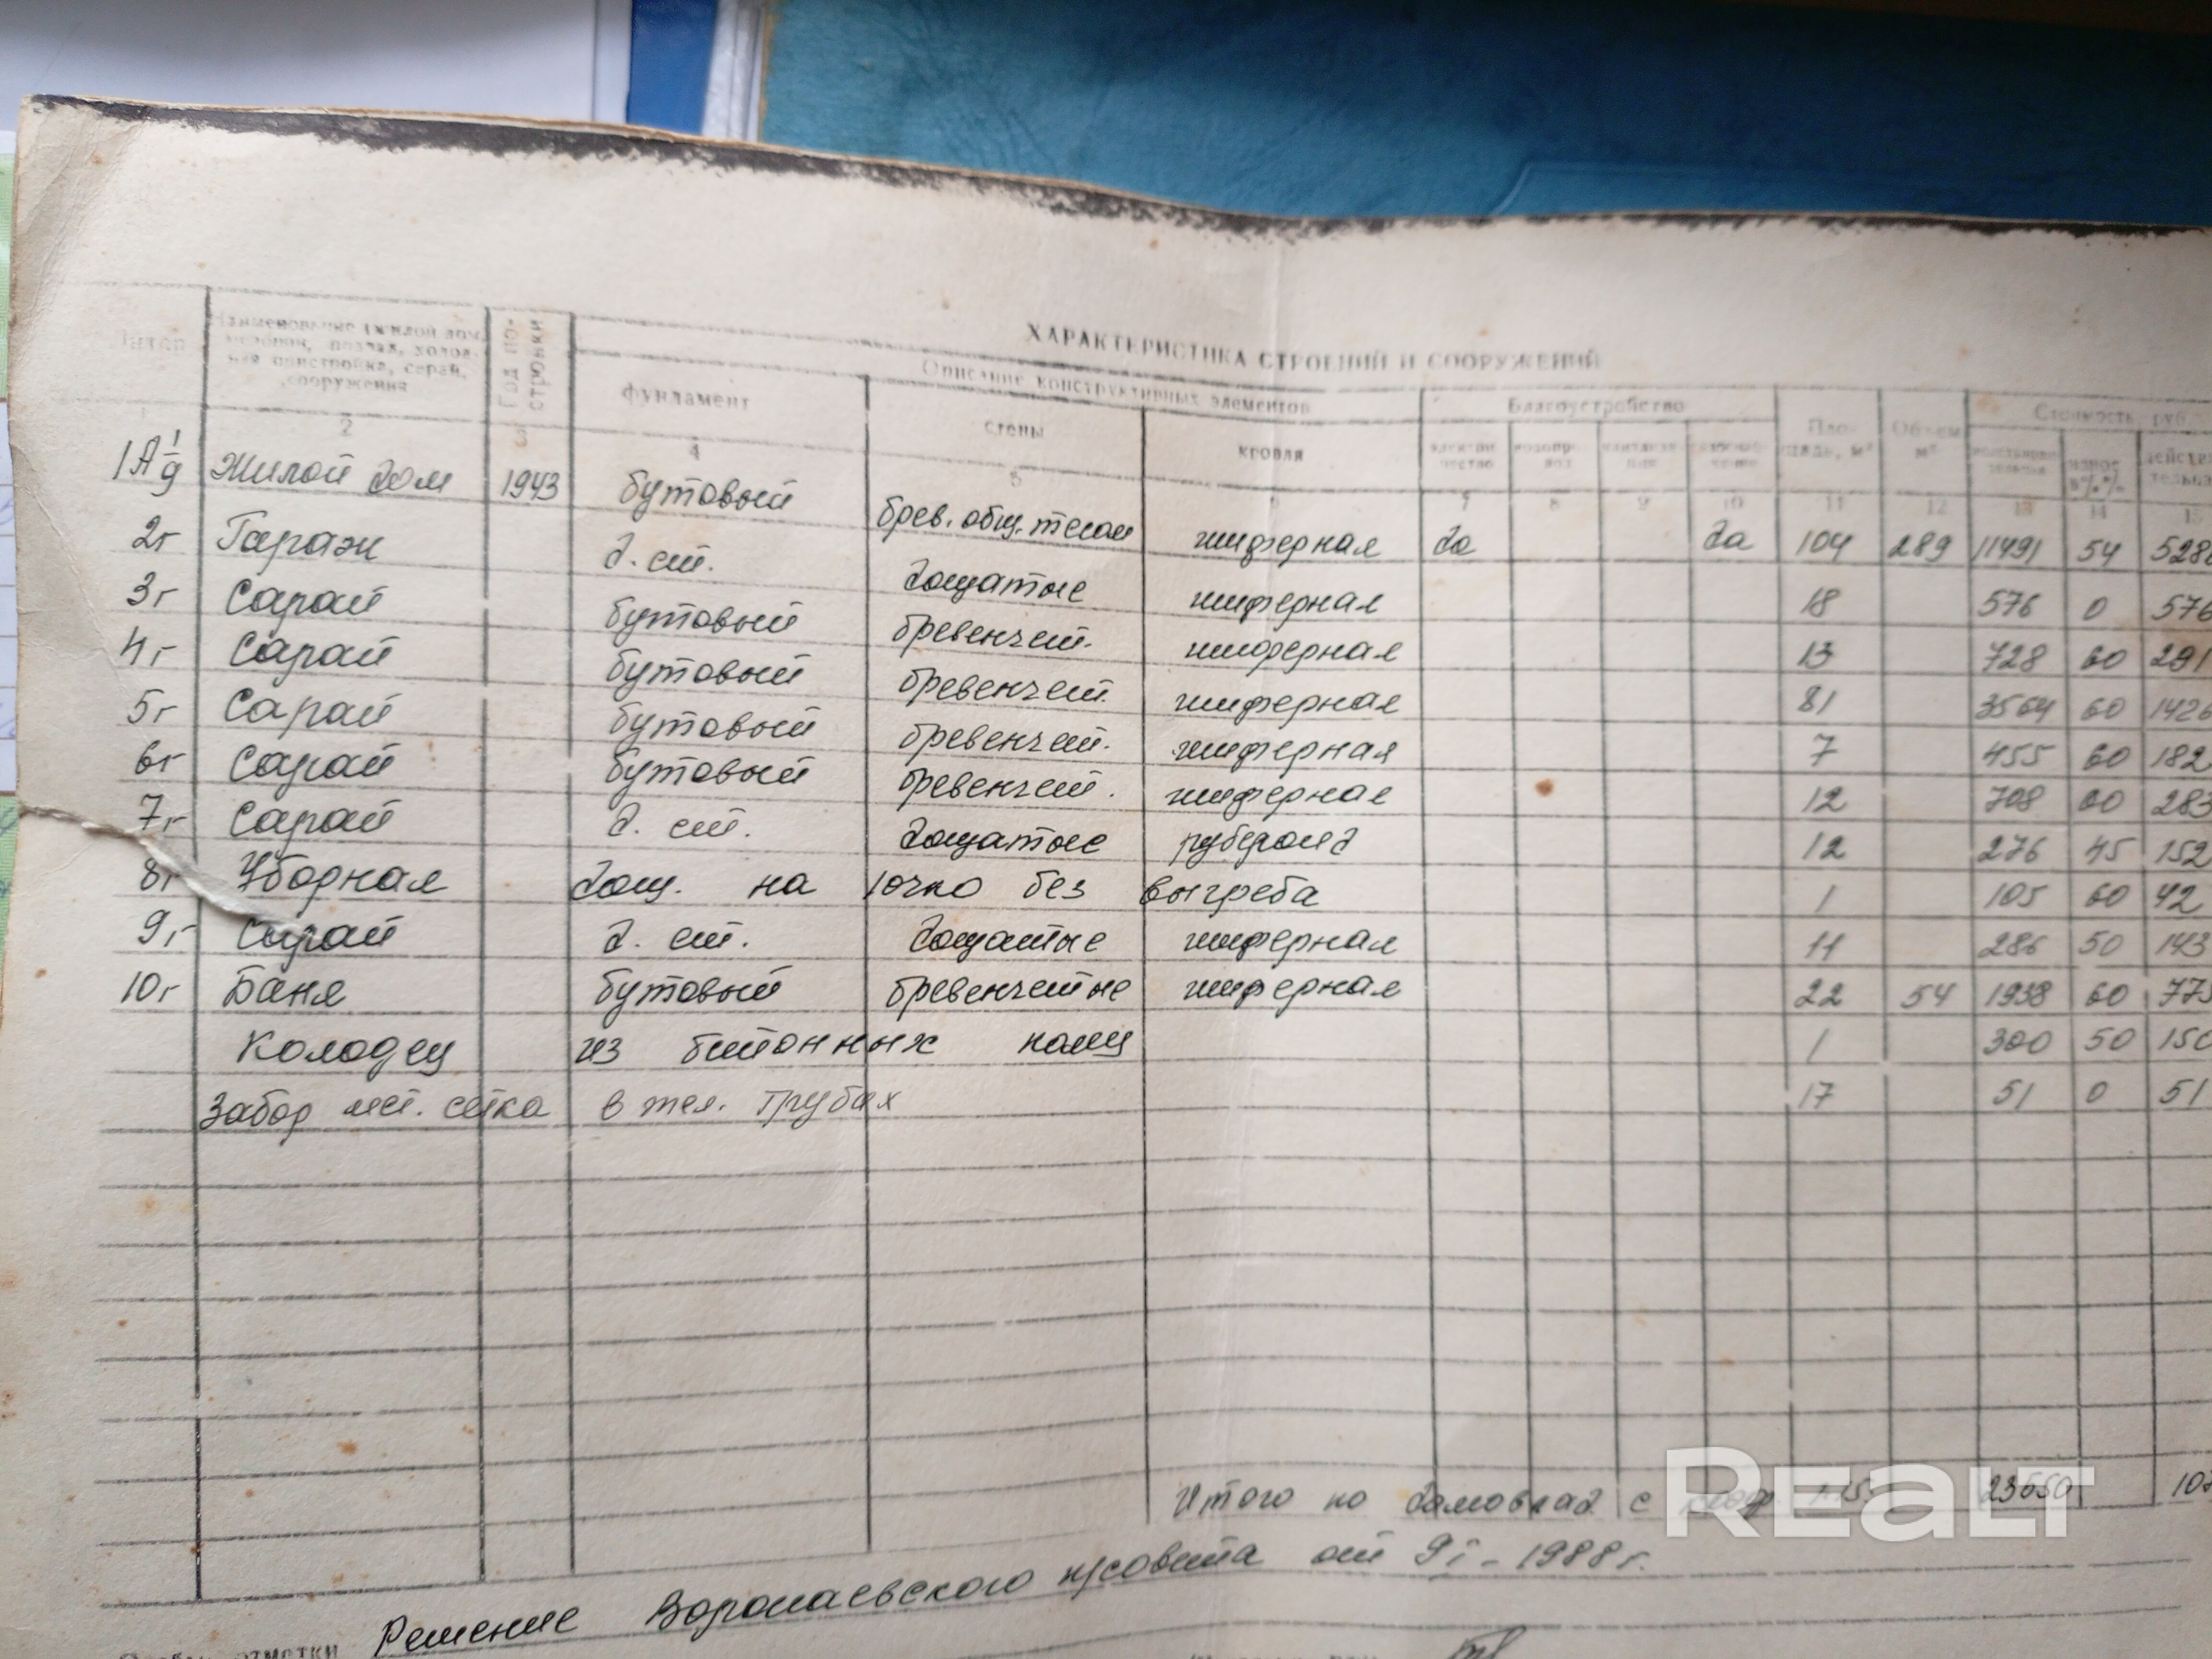 ХАРАКТЕРИСТИКА СТРОЕНИЙ И СООРУЖЕНИЙ
Литер Наименование (жилой дом, мезонин, подвал, холодная пристройка, сарай, сооружения Год постройки Описание конструктивных элементов Благоустройство Площадь, м² Объем м³ Стоимость, руб.
фундамент стены кровля электричество водопровод износ в %%
1 2 3 4 5 6 7 8 9 10 11 12 13 14 15
1А 1/д Жилой дом 1943 бутовый брев. общ. тесом шиферная да да 104 289 11491 54
2г Гараж д. ст. дощатые шиферная 18 576 0 576
3г Сарай бутовый бревенчат. шиферная 13 728 60 291
4г Сарай бутовый бревенчат. шиферная 81 3564 60 1426
5г Сарай бутовый бревенчат. шиферная 7 455 60 182
6г Сарай бутовый бревенчат. шиферная 12 708 60 283
7г Сарай д. ст. дощатые рубероид 12 276 45 152
8г Уборная дощ. на 1 очко без выгреба 1 105 60 42
9г Сарай д. ст. дощатые шиферная 11 286 50 143
10г Баня бутовый бревенчатые шиферная 22 54 1938 60 775
Колодец из бетонных колец 1 300 50 150
Забор мет. сетка в тел. трубах 17 51 0 51
Итого по домовлад с 23550
Решение Воропаевского п/совета от 9 I - 1988 г.
отметки
REALT